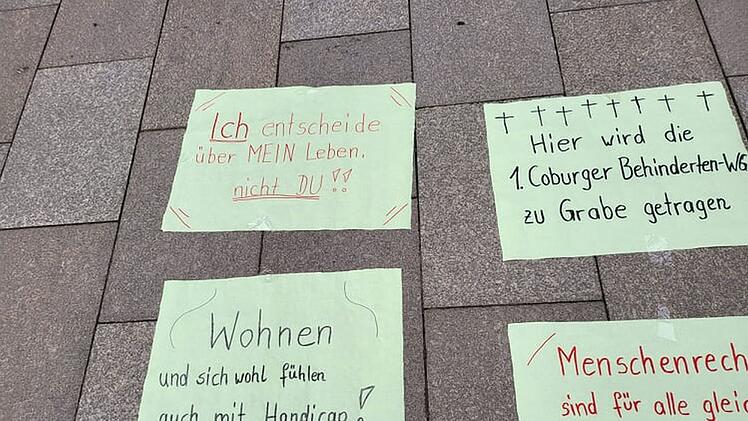 Ich entscheide
über MEIN Leben,
nicht DU!!
Hier wird die
1. Coburger Behinderten-WG
zu Grabe getragen
Wohnen
und sich wohl fühlen
auch mit Handicap!
Menschenrech
sind für alle gleic